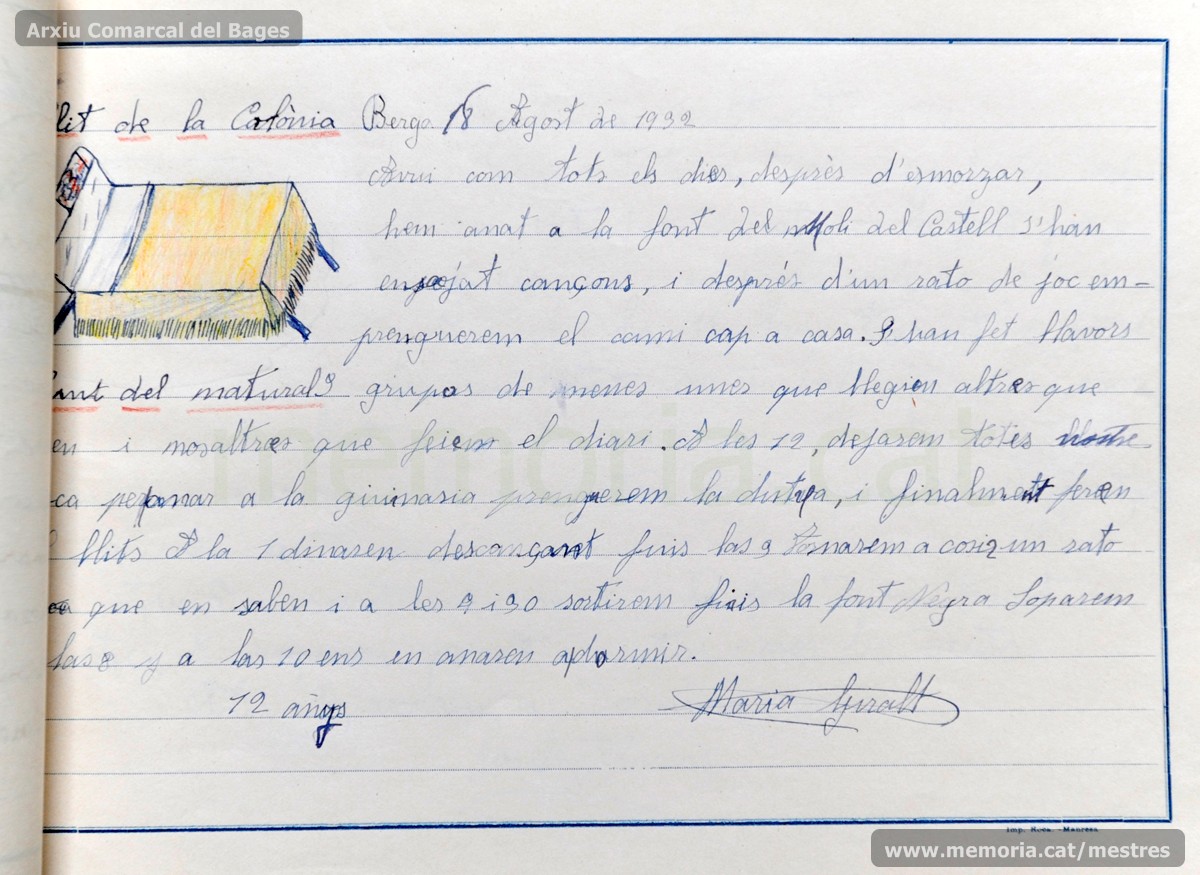 Arxiu Comarcal del Bages
llit de la Colònia Berga 18 Agost de 1932
Avui com tots els dies, després d'esmorzar,
hem anat a la font del Moli del Castell S'han
ensejat cançons, i després d'un rato de joc em-
prenguerem el cami cap a casa. S'han fet llavors
del natural grupos de nenes unes que llegien altres que
en i nosaltres que feiem el diari. A les 12, dejarem totes
ca per anar a la gimnasia prenguerem la dutxa, i finalment feren
llits A la 1 dinaren descançant fins las 3 Tornarem a cosir un rato
que en saben i a les 4 i 30 sortirem fins la font Negra Soparem
las 8 y a las 10 ens en anaren a dormir.
12 anys Maria Giralt
Imp. Roca. -Manresa
www.memoria.cat/mestres
memoria.cat